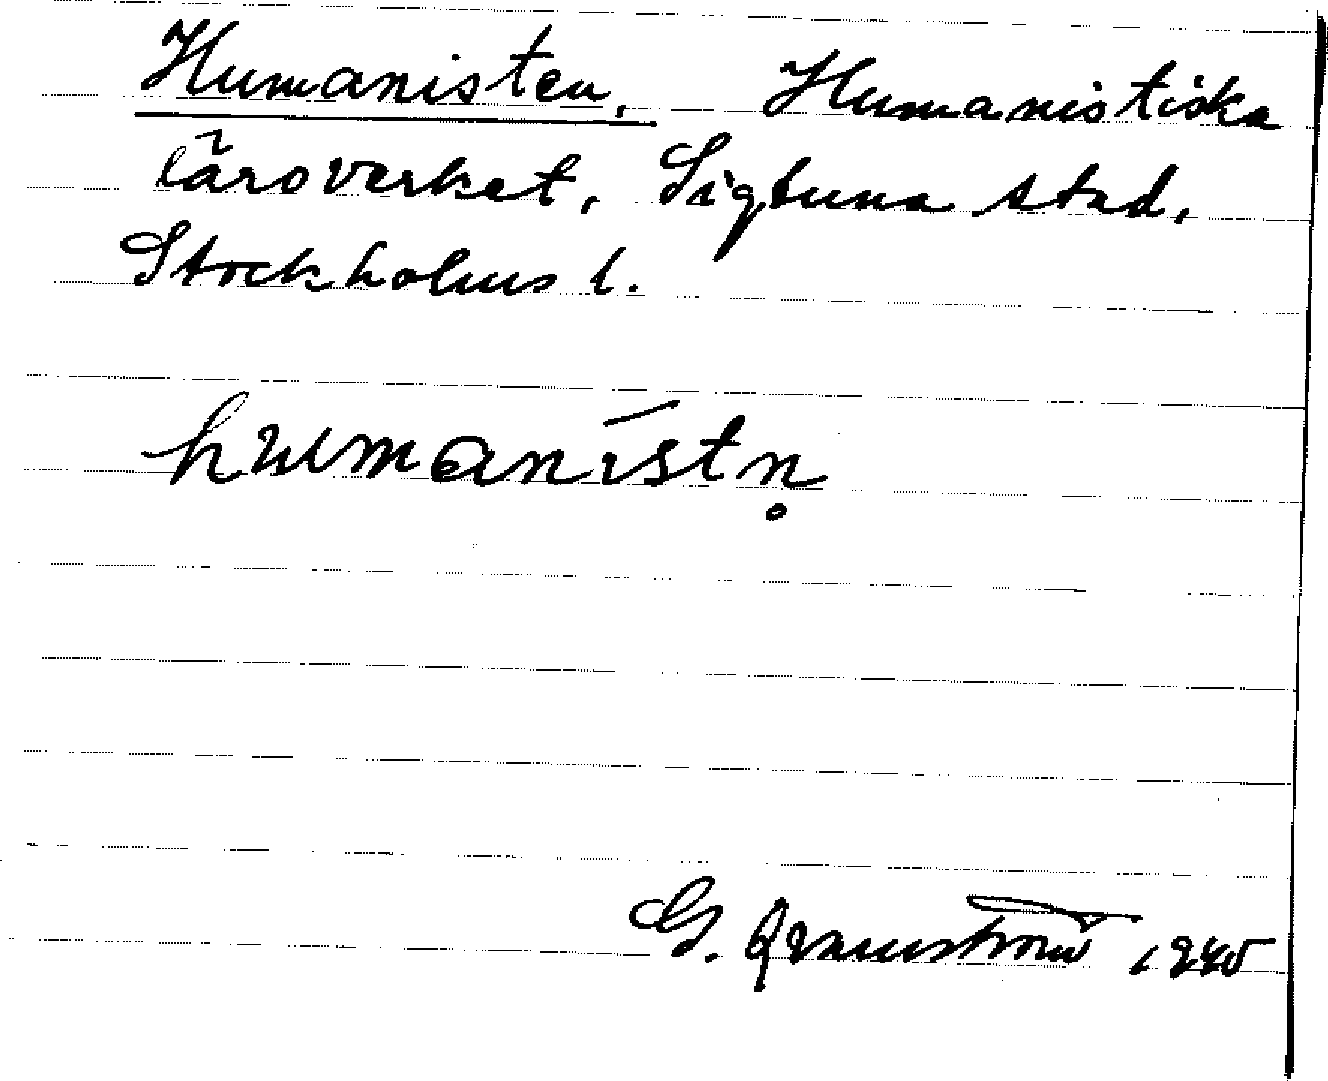 Humanisten, Humanistiska
läroverket, Sigtuna stad,
Stockholms l.
humanístn̥
G. Granström 1940